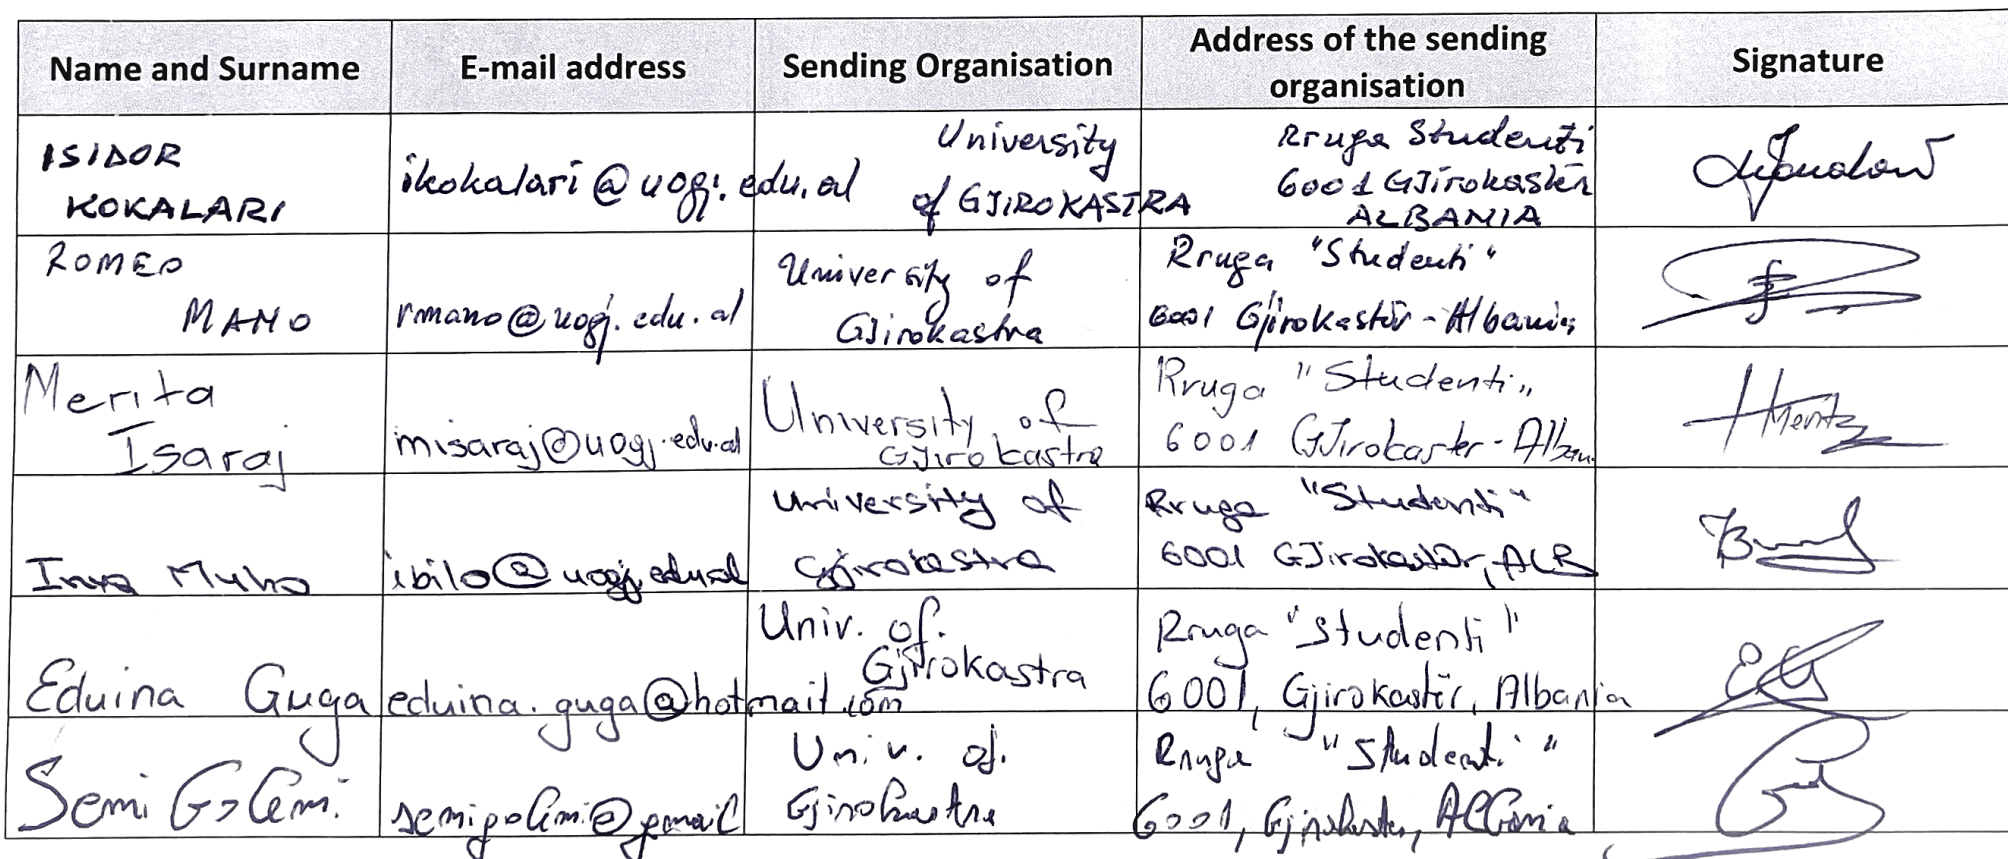 Name and Surname
E-mail address
Sending Organisation
Address of the sending
organisation
Signature
ISIDOR
KOKALARI
ikokalari@uogj.edu.al
University
of GJIROKASTRA
Rruga Studenti
6001 GJirokastër
ALBANIA
ROMEO
MANO
rmano@uogj.edu.al
University of
GJirokastra
Rruga "Studenti"
6001 Gjirokastër - Albania
Merita
Isaraj
misaraj@uogj.edu.al
University of
GJirokastra
Rruga "Studenti"
6001 GJirokaster - Alban
Merita
Inva Myho
ibilo@uogj.edu.al
University of
Gjirokastra
Rruga "Studenti"
6001 GJirokastër, ALB
Eduina Guga
eduina.guga@hotmail.com
Univ. of.
Gjirokastra
Rruga "Studenti"
6001, Gjirokastër, Albania
EG
Semi Golemi
semigolemi@gmail
Univ. of.
Gjirokastra
Rruga "Studenti"
6001, Gjirokaster, Albania